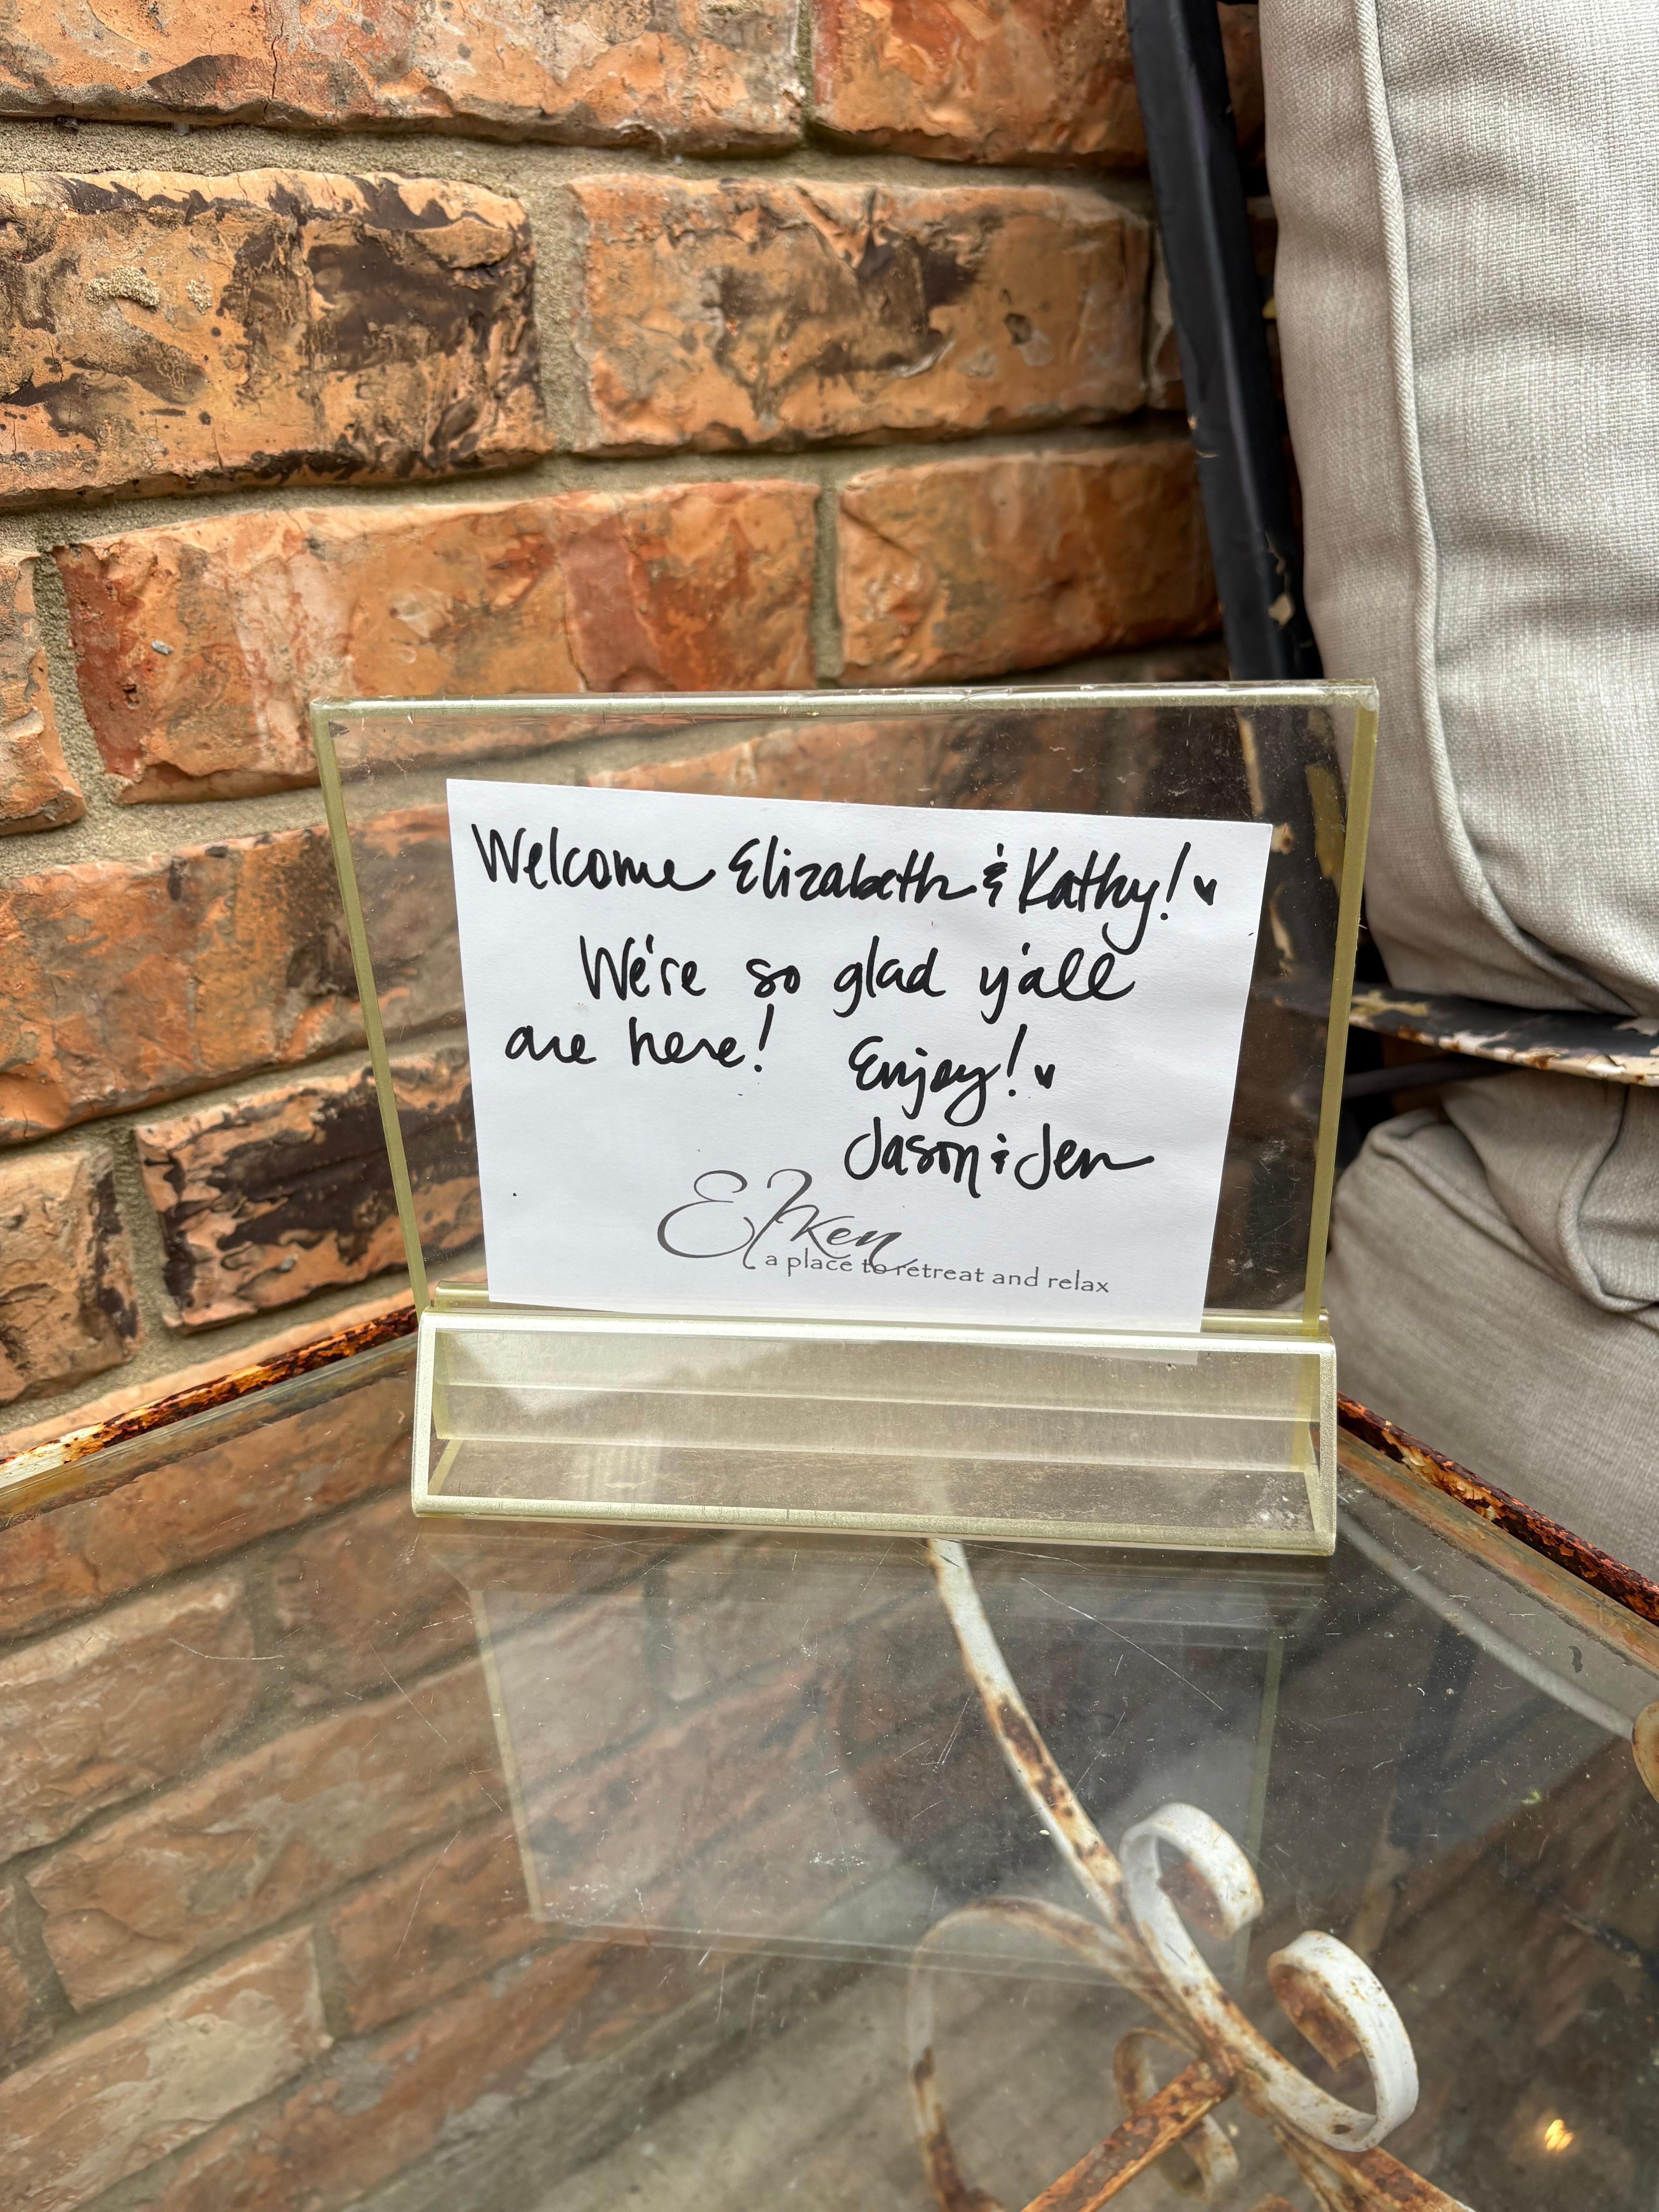 Welcome Elizabeth & Kathy! ♥
We're so glad y'all
are here!
Enjoy! ♥
Jason & Jen
Elken
a place to retreat and relax